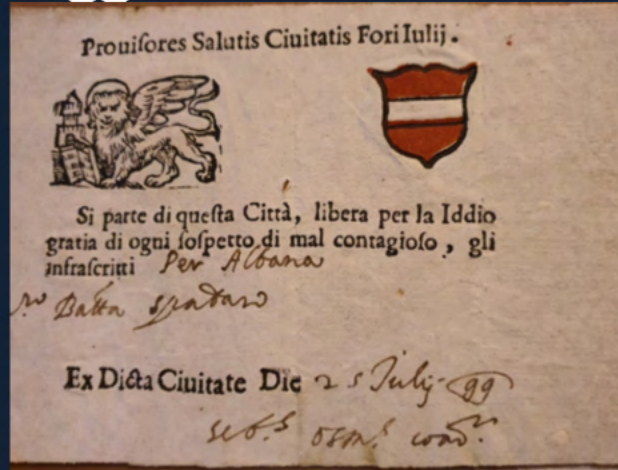 Prouiſores Salutis Ciuitatis Fori Iulij.
Si parte di queſta Città, libera per la Iddio
gratia di ogni ſoſpetto di mal contagioſo, gli
infraſcritti Per Albana
Batta spadaro
Ex Dicta Ciuitate Die 25 Iulij 99